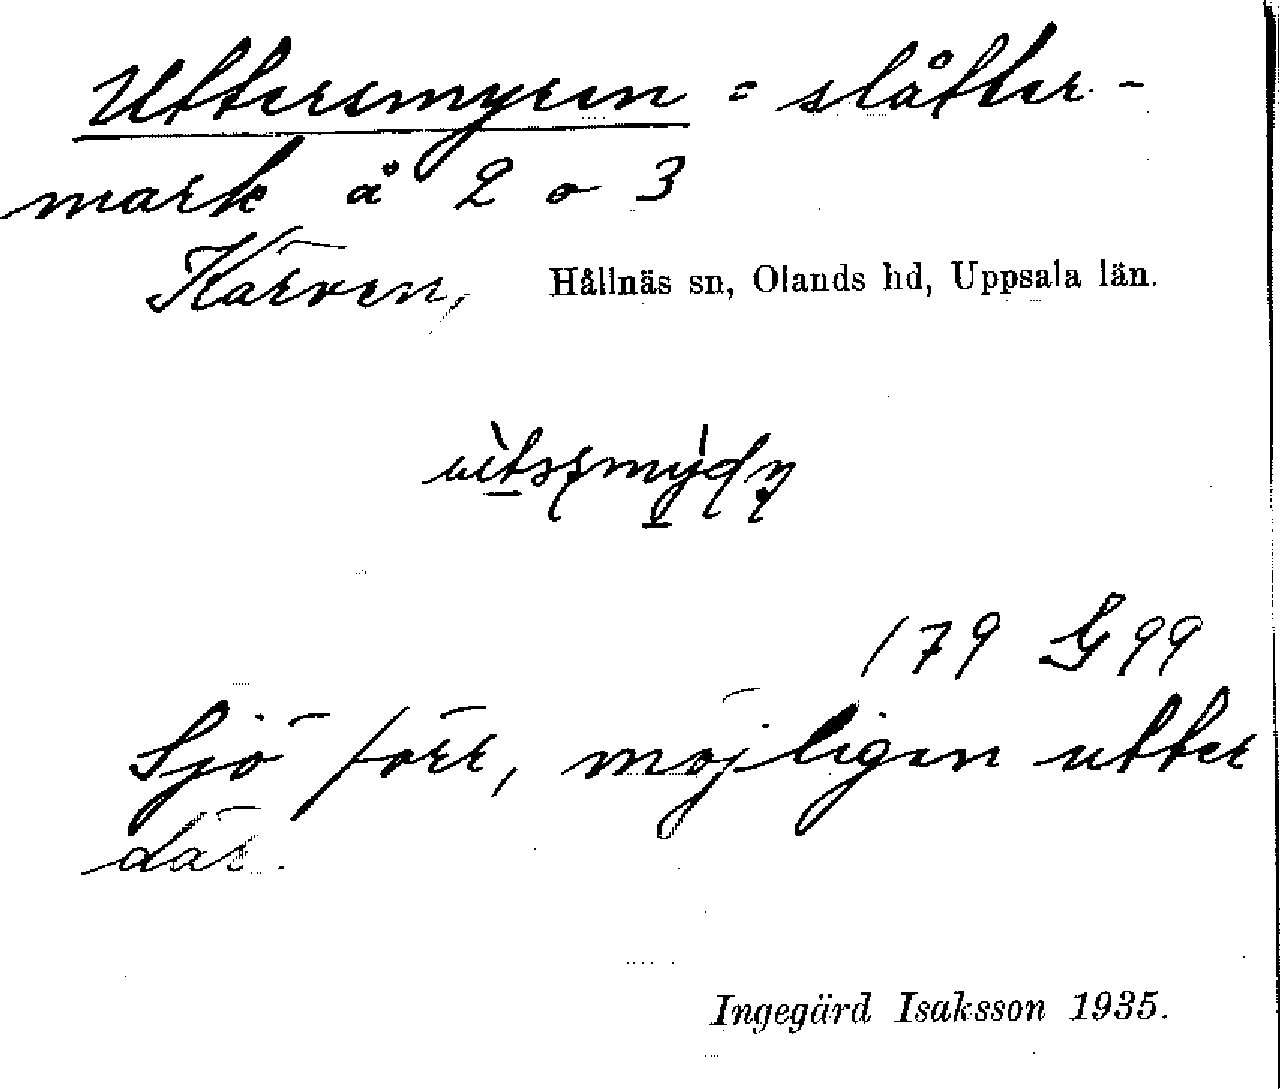 Uttersmyren = slåtter-
mark å 2 o 3
Kärven, Hållnäs sn, Olands hd, Uppsala län.
179 G 99
Sjö förr, möjligen utter
där.
Ingegärd Isaksson 1935.